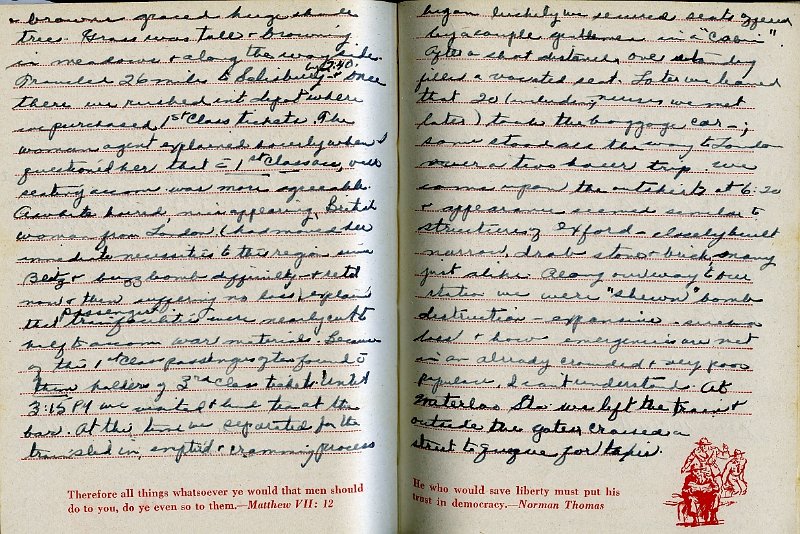 + browns graced huge shade
trees. Grass was tall + browning
in meadows + along the wayside.
Traveled 26 miles to Salisbury + once
there we rushed into depot where
we purchased 1st Class tickets. The
woman agent explained hourly when I
questioned her that 1st Class
seating accom was more agreeable.
A white haired, nice appearing, British
woman from London (has moved her
immediate necessities to the region since
Blitz + buzz bomb difficulty + ret'd
now + then suffering no loss) explained
that passenger facilities were nearly cut
half to accom war materials. Because
of this 1st Class passengers often found
them holders of 3rd Class tickets. Until
3:15 PM we waited + had tea at the
bar. At this time we separated for the
train sled in, emptied + cramming process
began luckily we secured seats offered
by a couple gentlemen in a "Cabin".
After a short distance over
filled a vacated seat. Later we learned
that 20 (including nurses we met
later) took the baggage car;
some stood all the way to London
over a two hour trip. We
came upon the outskirts at 6:20
+ appearance seemed similar to
structures of Oxford - closely built
narrow, drab stone + brick, many
just alike. Along our way to our
station we were "shewn" bomb
destruction - expansive - such a
loss + how emergencies are met
in an already crowded + very poor
populace, I can't understand. At
Waterloo Sta. we left the train +
outside the gates, crossed a
street to queue for taxis.
Therefore all things whatsoever ye would that men should
do to you, do ye even so to them.—Matthew VII: 12
He who would save liberty must put his
trust in democracy.—Norman Thomas